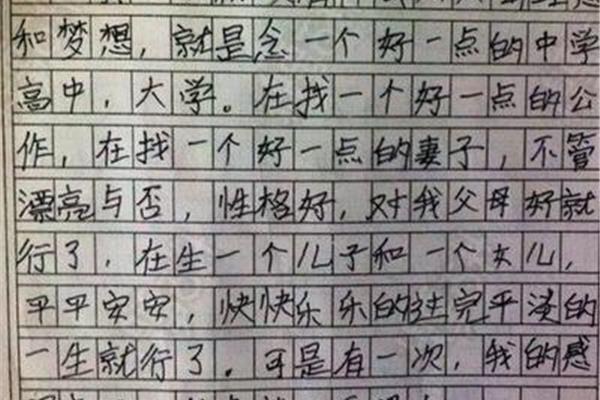 和梦想，就是念一个好一点的中学
高中，大学。在找一个好一点的公
作，在找一个好一点的妻子，不管
漂亮与否，性格好，对我父母好就
行了，在生一个儿子和一个女儿，
平平安安，快快乐乐的过完平淡的
一生就行了。可是有一次，我的感